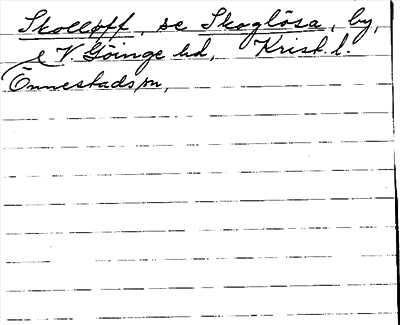 Skolløff, se Skoglösa, by,
V. Göinge hd, Krist. l.
Önnestads sn,